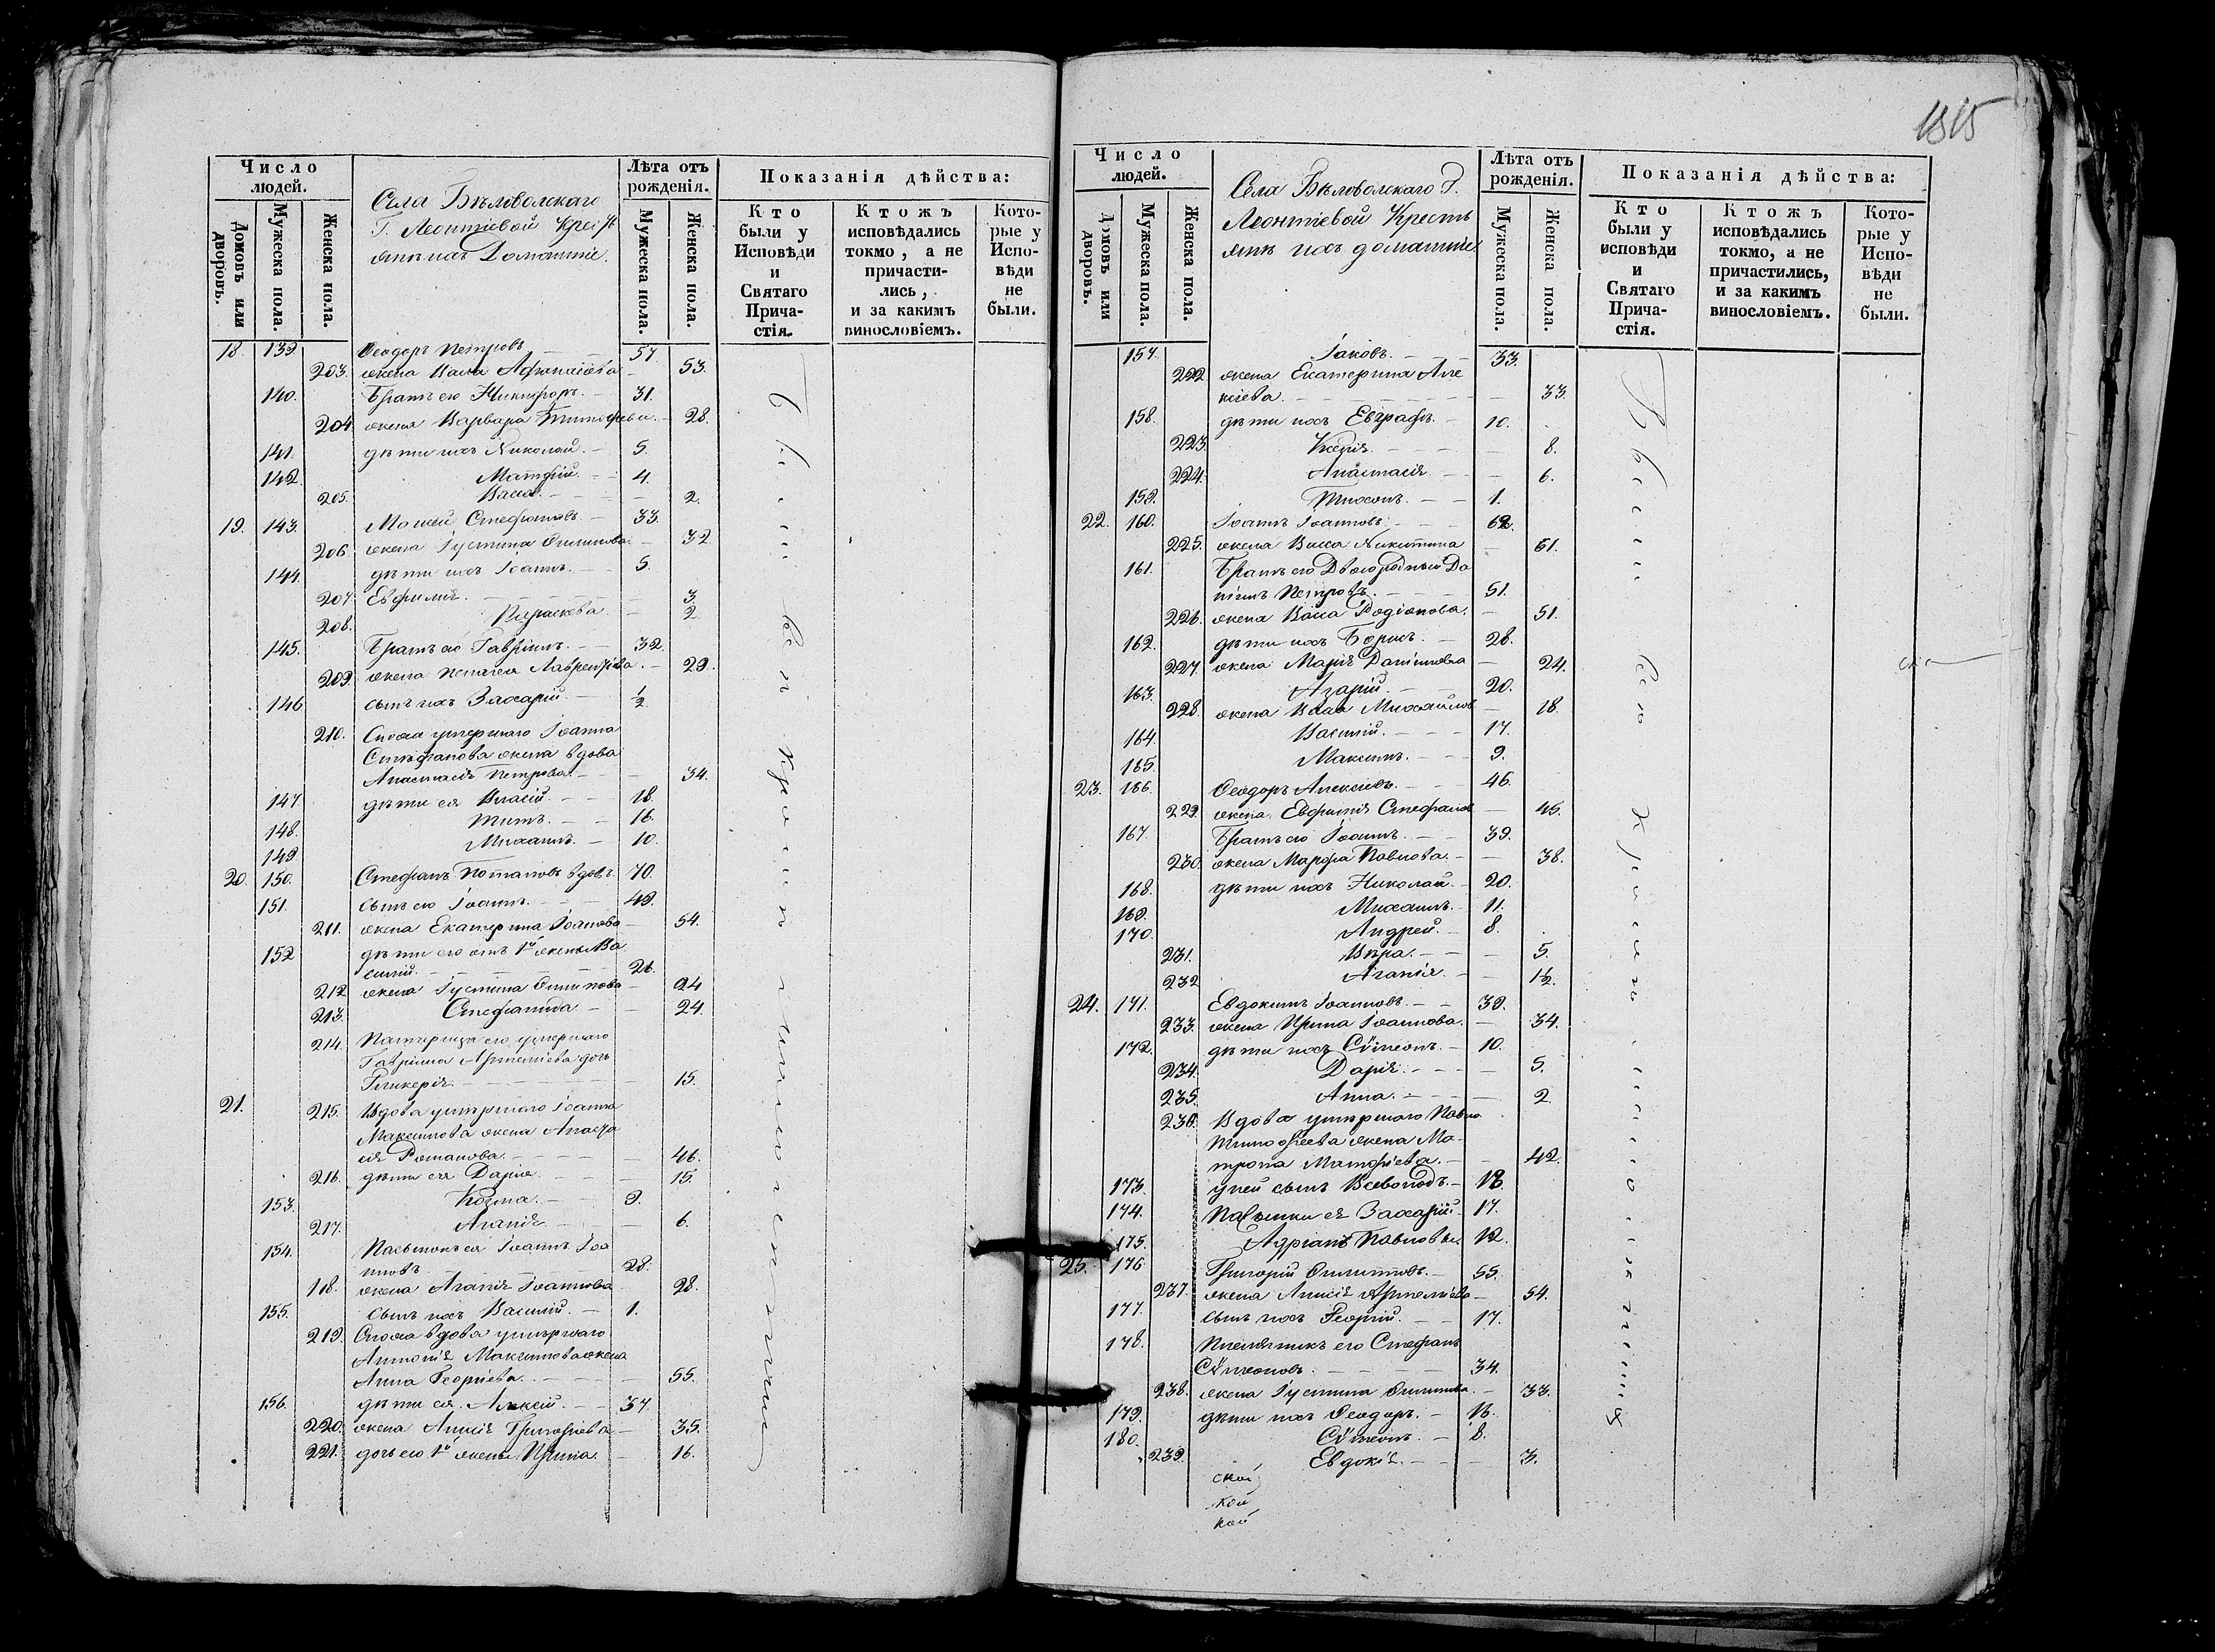 1815
Число людей.
Домовъ или дворовъ.
Мужеска пола.
Женска пола.
Села Бѣловолскаго
Г. Леонтіевой Крест
янѣ ихъ Домашніе.
Лѣта отъ рожденія.
Мужеска пола.
Женска пола.
Показанія дѣйства:
Кто были у Исповѣди и Святаго Прича-стія.
Ктожъ исповѣдались токмо, а не причасти-лись, и за какимъ винословіемъ.
Кото-рые у Испо-вѣди не были.
18. 139. Ѳеодоръ Петровъ 57
203. жена Васса Афанасіева 53.
140. Братъ его Никифоръ. 31.
204 жена Варвара Тимофеева. 28.
141. дѣти ихъ Николай. 5.
142. Матфій. 4.
205. Васса. 2.
19. 143. Моисей Стефановъ 33.
206 жена Іустина Филипова 32
144. дѣти ихъ Іоаннъ. 5.
207 Евфимія. 3.
208. Параскева 2.
145. Братъ его Гавріилъ. 32.
209. жена Пелагея Лаврентіева. 29.
146 сынъ ихъ Захарій. 1/2
210. Сноха умершаго Іоанна
Стефанова жена вдова
Анастасія Петрова. 34.
147 дѣти ея Власій. 18.
148. Титъ. 16.
149 Михаилъ. 10.
20. 150. Стефанъ Потаповъ вдовъ. 70.
151. сынъ его Іоаннъ. 49.
211. жена Екатерина Іоанова 54.
152 дѣти его отъ 1й жены Ва
силій. 26.
212 жена Іустина Филипова 24
213. Стефанида 24.
214. Падчерица его умершаго
Гавріила Артеміева дочь
Гликерія. 15.
21. 215. Вдова умершаго Іоанна
Максимова жена Анаста
сія Романова. 46.
216. дѣти ея Дарія. 15.
153. Козма. 9.
217. Агапія. 6.
154. Пасынокъ ея Іоаннъ Іоа
нновъ. 28.
118. жена Агапія Іоаннова 28.
155. Сынъ ихъ Василій. 1.
219. Сноха вдова умершаго
Антонія Максимова жена
Анна Георгіева. 55.
156. дѣти ея. Алексій. 37.
220. жена Анисія Григоріева 35.
221. дочь его 1й жены. Ирина. 16.
Число людей.
Домовъ или дворовъ.
Мужеска пола.
Женска пола.
Села Бѣловолскаго Г.
Леонтіевой Кресть
янѣ ихъ домашніе
Лѣта отъ рожденія.
Мужеска пола.
Женска пола.
Показанія дѣйства:
Кто были у исповѣди и Святаго Прича-стія.
Ктожъ исповѣдались токмо, а не причастились, и за какимъ винословіемъ.
Кото-рые у Испо-вѣди не были.
157. Іаковъ. 33.
222 жена Екатерина Але
ксіева. 33.
158. дѣти ихъ Евграфъ. 10.
223. Ксенія. 8.
224. Анастасія 6.
159. Тихонъ. 1.
22. 160. Іоаннъ Іоанновъ 62.
225. жена Васса Никитина 61.
161. Братъ его Двоюродный Да
ніилъ Петровъ. 51.
226. жена Васса Родіонова. 51.
162. дѣти ихъ Борисъ. 28.
227. жена Марія Даніилова 24.
163. Азарій. 20.
228. жена Васса Михайлов 18.
164. Василій. 17.
165. Максимъ. 9.
23. 166. Ѳеодоръ Алексіевъ. 46.
229. жена Евфимія Стефанов 45.
167. Братъ его Іоаннъ. 39.
230. жена Марфа Павлова. 38.
168. дѣти ихъ Николай. 20.
169. Михаилъ. 11.
170. Андрей. 8.
231. Вѣра. 5.
232 Агапія. 1 1/2.
24. 171. Евдокимъ Іоанновъ. 39.
233. жена Ирина Іоаннова. 34.
172. дѣти ихъ Сѵмеонъ. 10.
234. Дарія. 5.
235. Анна. 2.
236. Вдова умершаго Павла
Тимофеева жена Ма-
трона Матфіева. 42.
173. у ней сынъ Всеволодъ. 18.
174. Пасынки ея Захарій. 17.
175. Адріанъ Павловы 12.
25. 176 Григорій Филипповъ. 55.
237. жена Анисія Артеміева 54.
177. сынъ ихъ Георгій. 17.
178. Племянникъ его Стефанъ
Сѵмеоновъ. 34.
238. жена Іустина Филипова. 33.
179. дѣти ихъ Ѳеодоръ. 13.
180. Сѵмеонъ. 8.
239. Евдокія. 3.
ской
кой
кой